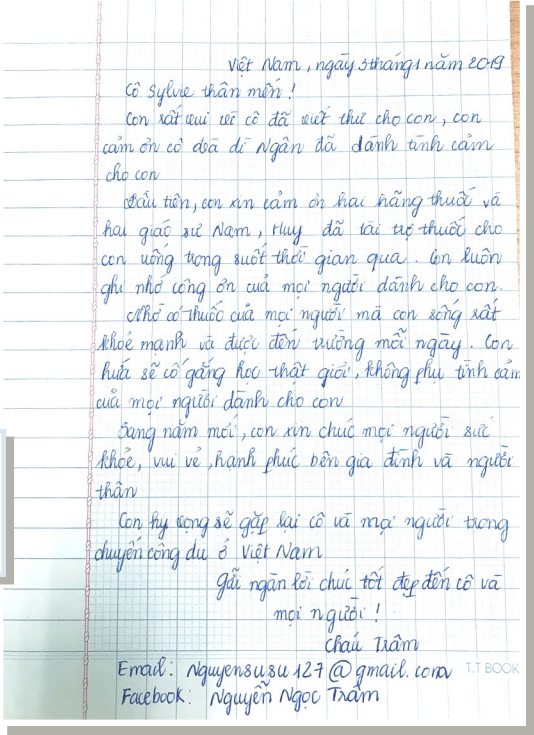 Việt Nam, ngày 3 tháng 1 năm 2019
Cô Sylvie thân mến!
Con rất vui vì cô đã viết thư cho con, con
cảm ơn cô và dì Ngân đã dành tình cảm
cho con
Đầu tiên, con xin cảm ơn hai hãng thuốc và
hai giáo sư Nam, Huy đã tài trợ thuốc cho
con uống trong suốt thời gian qua. Con luôn
ghi nhớ công ơn của mọi người dành cho con.
Nhờ có thuốc của mọi người mà con sống rất
khoẻ mạnh và được đến trường mỗi ngày. Con
hứa sẽ cố gắng học thật giỏi, không phụ tình cảm
của mọi người dành cho con
Sang năm mới, con xin chúc mọi người sức
khỏe, vui vẻ, hạnh phúc bên gia đình và người
thân
Con hy vọng sẽ gặp lại cô và mọi người trong
chuyến công du ở Việt Nam
Gửi ngàn lời chúc tốt đẹp đến cô và
mọi người!
Cháu Trâm
Email: Nguyensusu127@gmail.com
T.T BOOK
Facebook: Nguyễn Ngọc Trâm